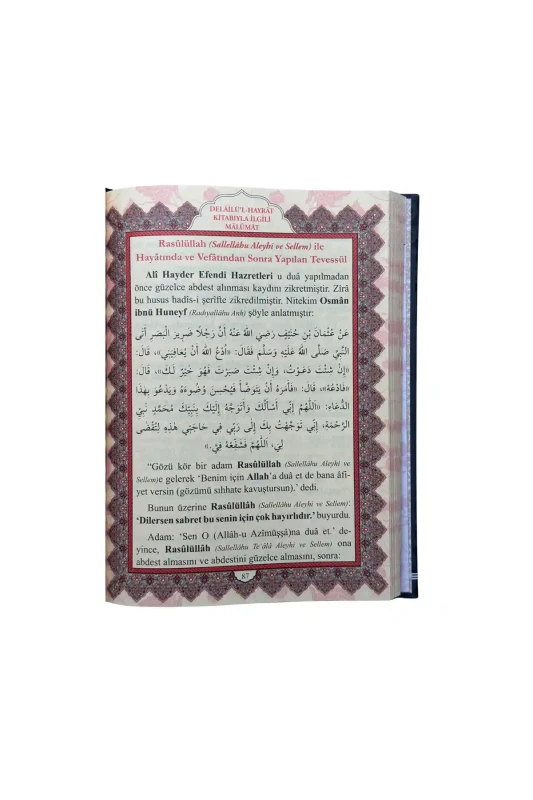 DELÂİLÜ'L-HAYRÂT
KİTABIYLA İLGİLİ
MÂLÛMÂT
Rasûlüllah (Sallellâhu Aleyhi ve Sellem) ile
Hayâtında ve Vefâtından Sonra Yapılan Tevessül
Alî Hayder Efendi Hazretleri u duâ yapılmadan
önce güzelce abdest alınması kaydını zikretmiştir. Zîrâ
bu husus hadîs-i şerîfte zikredilmiştir. Nitekim Osmân
ibnü Huneyf (Radıyallâhu Anh) şöyle anlatmıştır:
عَنْ عُثْمَانَ بْنِ حُنَيْفٍ رَضِيَ اللهُ عَنْهُ أَنَّ رَجُلًا ضَرِيرَ الْبَصَرِ أَتَى
النَّبِيَّ صَلَّى اللهُ عَلَيْهِ وَسَلَّمَ فَقَالَ: «اُدْعُ اللهَ أَنْ يُعَافِيَنِي»، قَالَ:
«إِنْ شِئْتَ دَعَوْتُ، وَإِنْ شِئْتَ صَبَرْتَ فَهُوَ خَيْرٌ لَكَ»، قَالَ:
«فَادْعُهْ»، قَالَ: «فَأَمَرَهُ أَنْ يَتَوَضَّأَ فَيُحْسِنَ وُضُوءَهُ وَيَدْعُوَ بِهٰذَا
الدُّعَاءِ: «اَللّٰهُمَّ إِنِّي أَسْأَلُكَ وَأَتَوَجَّهُ إِلَيْكَ بِنَبِيِّكَ مُحَمَّدٍ نَبِيِّ
الرَّحْمَةِ، إِنِّي تَوَجَّهْتُ بِكَ إِلَى رَبِّي فِي حَاجَتِي هٰذِهِ لِتُقْضَى
لِي، اَللّٰهُمَّ فَشَفِّعْهُ فِيَّ.»
“Gözü kör bir adam Rasûlüllâh (Sallellâhu Aleyhi ve
Sellem)e gelerek ‘Benim için Allah’a duâ et de bana âfi-
yet versin (gözümü sıhhate kavuştursun).’ dedi.
Bunun üzerine Rasûlüllâh (Sallellâhu Aleyhi ve Sellem):
‘Dilersen sabret bu senin için çok hayırlıdır.’ buyurdu.
Adam: ‘Sen O (Allâh-u Azîmüşşâ)na duâ et.’ de-
yince, Rasûlüllâh (Sallellâhu Te‘âlâ Aleyhi ve Sellem) ona
abdest almasını ve abdestini güzelce almasını, sonra:
87